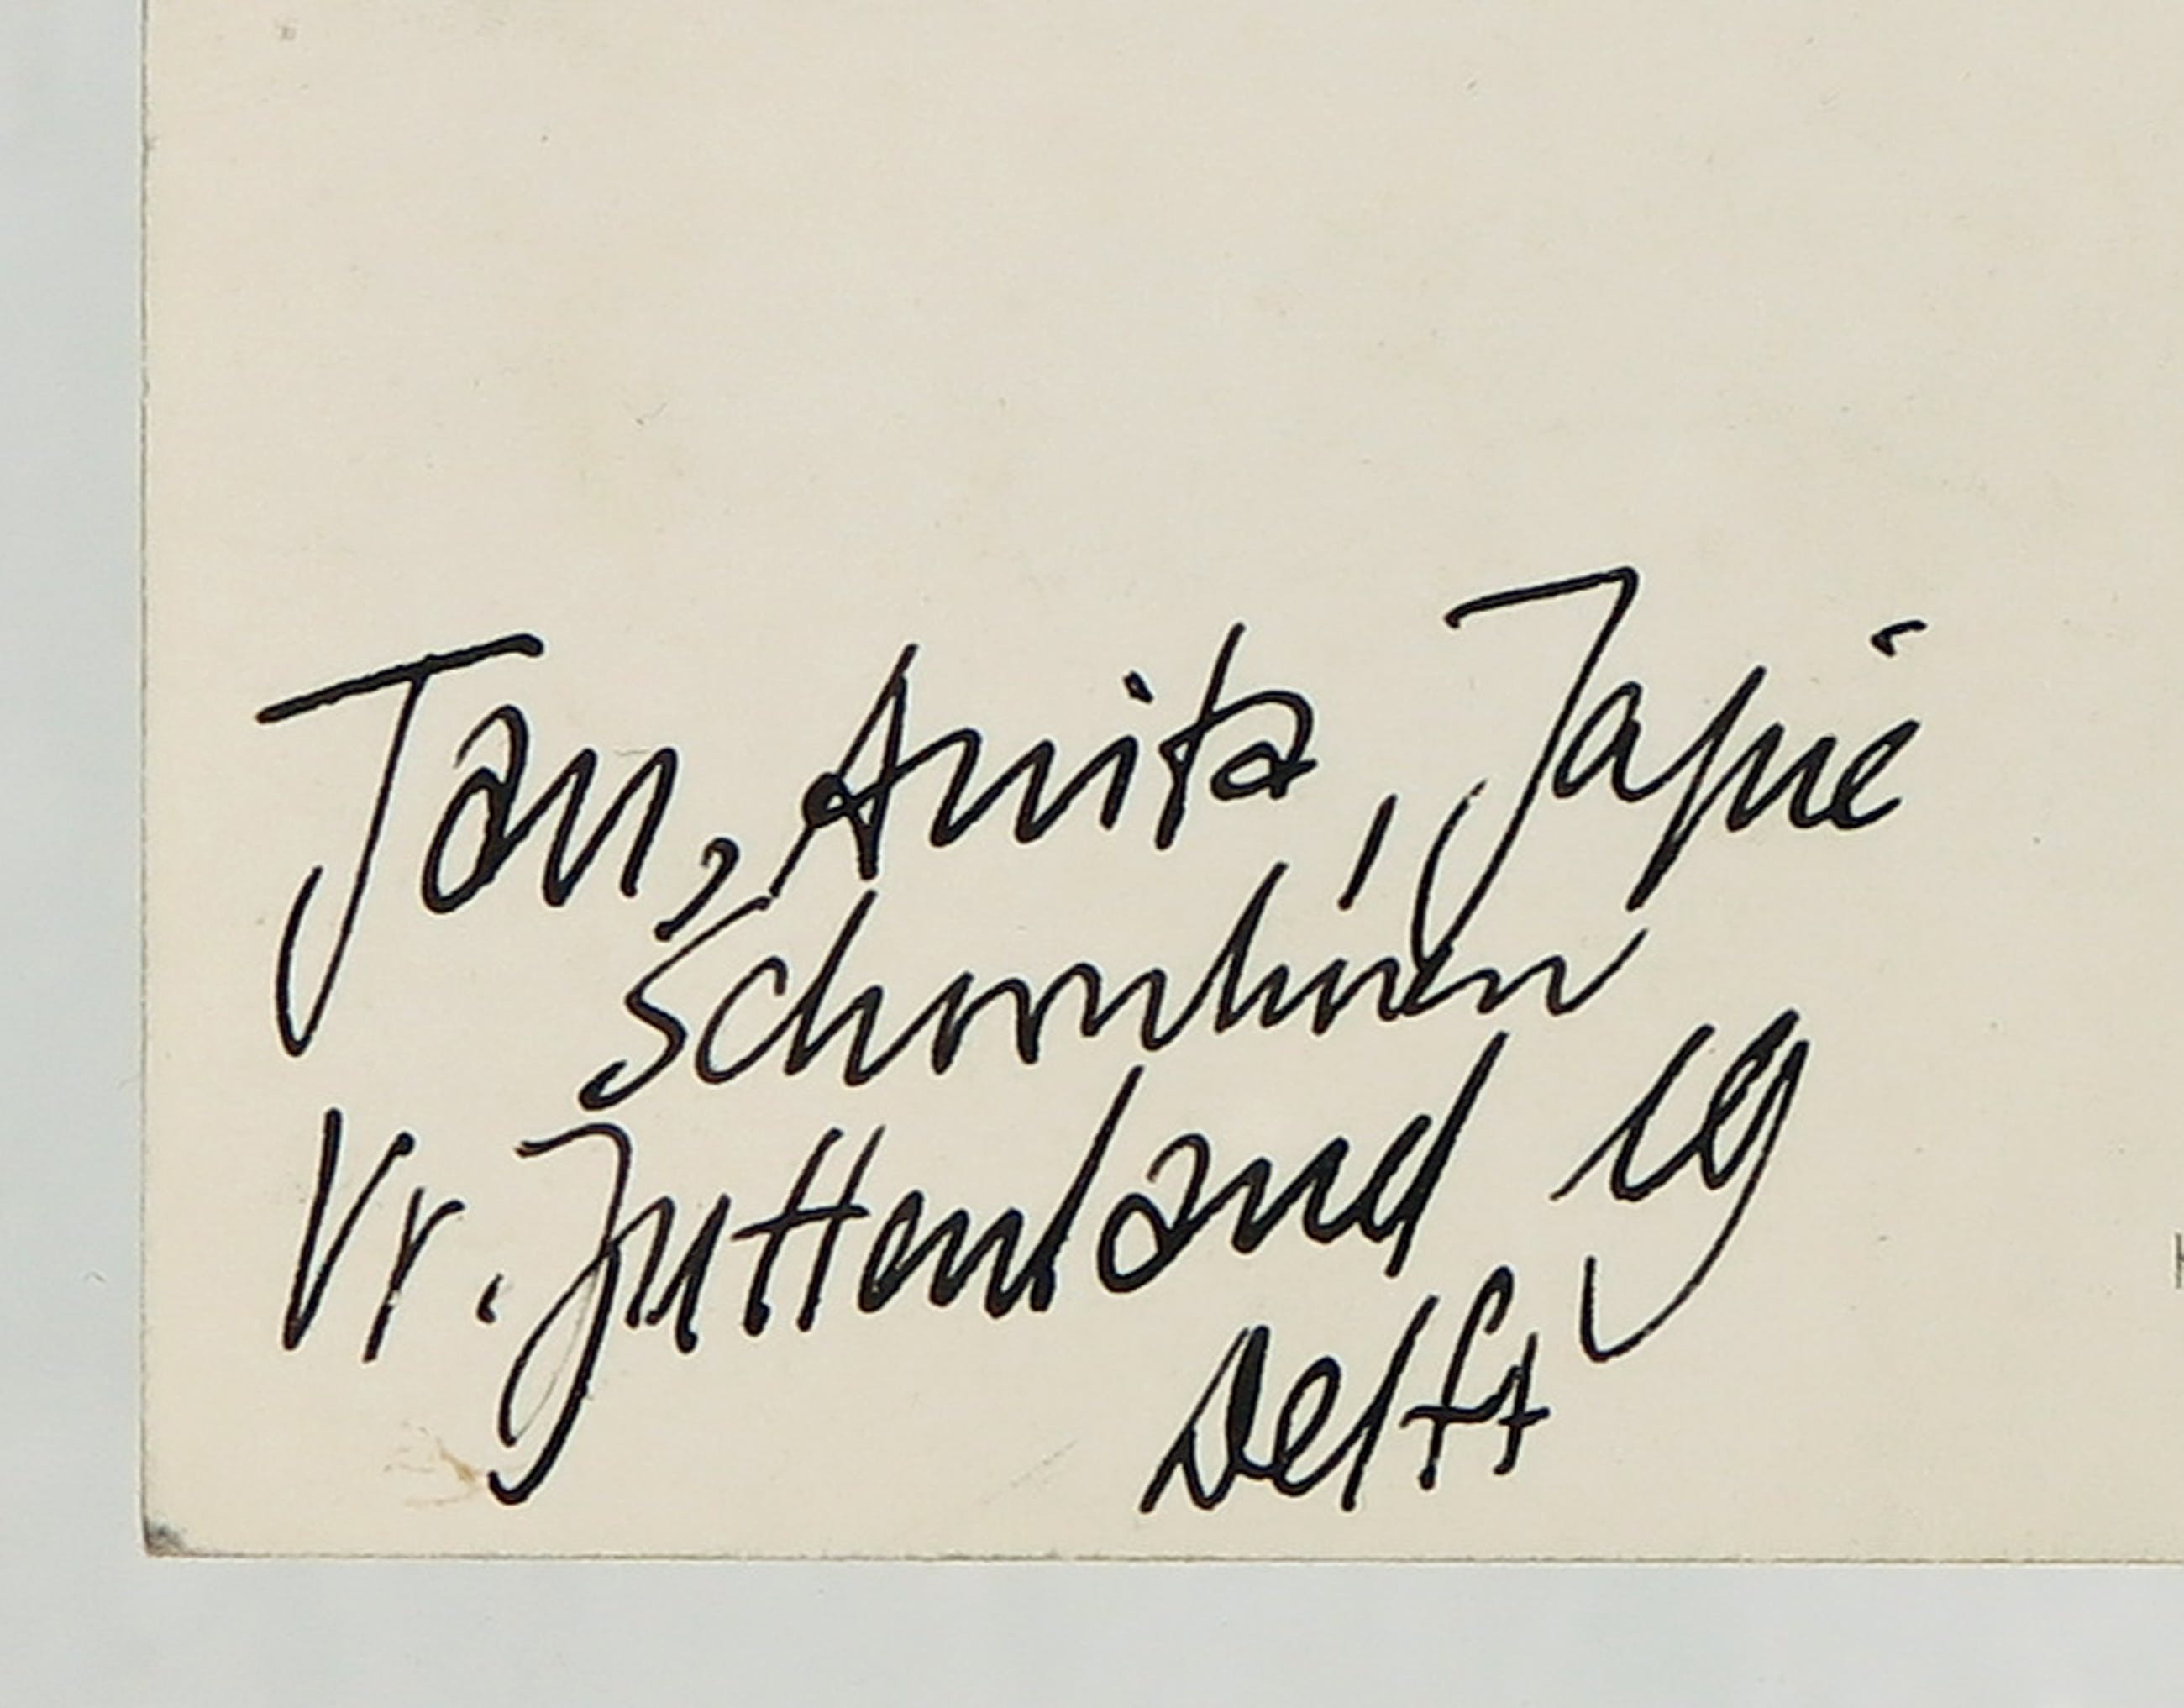 Jan, Anita, Japie
Schoonhoven
Vr. Juttenland 19
Delft